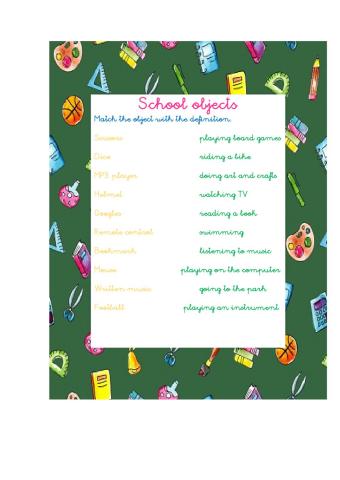 School objects
Match the object with the definition.
Scissors playing board games
Dice riding a bike
MP3 player doing art and crafts
Helmet watching TV
Googles reading a book
Remote control swimming
Bookmark listening to music
Mouse playing on the computer
Written music going to the park
Football playing an instrument